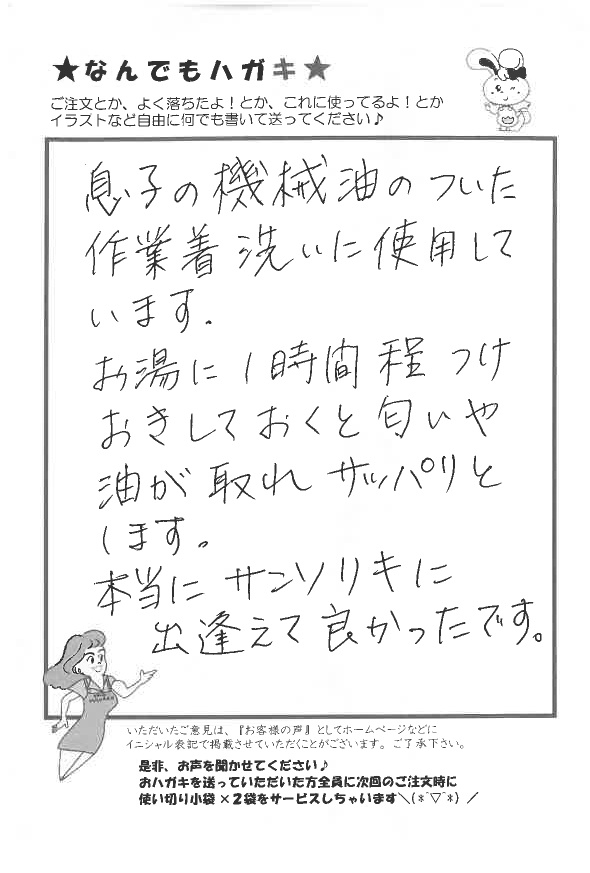 ★なんでもハガキ★
ご注文とか、よく落ちたよ！とか、これに使ってるよ！とか
イラストなど自由に何でも書いて送ってください♪
息子の機械油のついた
作業着洗いに使用して
います.
お湯に1時間程つけ
おきしておくと匂いや
油が取れサッパリと
します。
本当にサンソリキに
出逢えて良かったです。
いただいたご意見は、『お客様の声』としてホームページなどに
イニシャル表記で掲載させていただくことがございます。ご了承下さい。
是非、お声を聞かせてください♪
おハガキを送っていただいた方全員に次回のご注文時に
使い切り小袋×2袋をサービスしちゃいます＼(*^▽^*)／